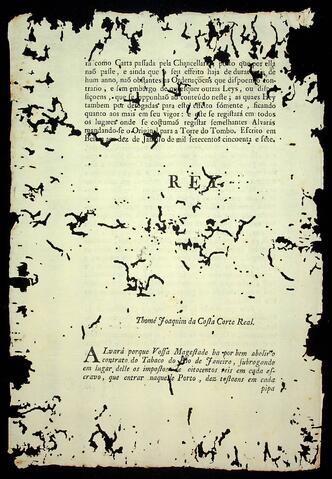 rá como Carta passada pela Chancellaria, posto que por ella
naõ passe, e ainda que seu effeito haja de durar mais de
hum anno, naõ obstantes as Ordenaçoens que dispoem o con-
trario, e sem embargo de quaesquer outras Leys, ou dispo-
siçoens, que se opponhaõ ao conteúdo neste; as quaes Ley
tambem por derogadas para este effeito sómente, ficando
quanto aos mais em seu vigor: e este se registará em todos
os lugares onde se costumaõ registar semelhantes Alvarás
mandando-se o Original para a Torre do Tombo. Escrito em
de Janeiro de mil setecentos cincoenta e sete.
REY
Thomé Joaquim da Costa Corte Real.
ALvará porque Vossa Magestade ha por bem abolir o
contrato do Tabaco do Rio de Janeiro, subrogando
em lugar delle os impostos de oitocentos reis em cada es-
cravo, que entrar naquelle Porto, dez testoens em cada
pipa